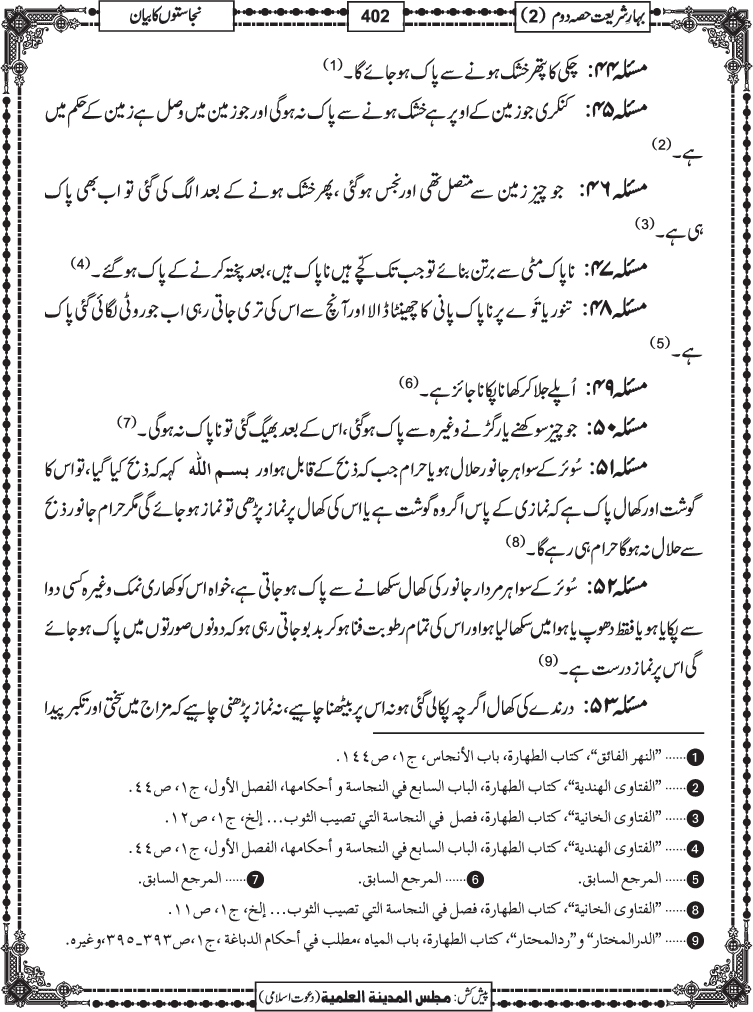 بہارِ شریعت حصہ دوم (2)
402
نجاستوں کا بیان
مسئلہ ۴۴: چکّی کا پتھر خشک ہونے سے پاک ہو جائے گا۔ (1)
مسئلہ ۴۵: کنکری جو زمین کے اوپر ہے خشک ہونے سے پاک نہ ہوگی اور جو زمین میں وصل ہے زمین کے حکم میں
ہے۔ (2)
مسئلہ ۴۶: جو چیز زمین سے متصل تھی اور نجس ہوگئی ، پھر خشک ہونے کے بعد الگ کی گئی تو اب بھی پاک
ہی ہے۔ (3)
مسئلہ ۴۷: ناپاک مٹی سے برتن بنائے تو جب تک کچّے ہیں ناپاک ہیں، بعد پختہ کرنے کے پاک ہوگئے۔ (4)
مسئلہ ۴۸: تنور یا تَوے پر ناپاک پانی کا چھینٹا ڈالا اور آنچ سے اس کی تری جاتی رہی اب جو روٹی لگائی گئی پاک
ہے۔ (5)
مسئلہ ۴۹: اُپلے جلا کر کھانا پکانا جائز ہے۔ (6)
مسئلہ ۵۰: جو چیز سوکھنے یا رگڑنے وغیرہ سے پاک ہوگئی، اس کے بعد بھیگ گئی تو ناپاک نہ ہوگی۔ (7)
مسئلہ ۵۱: سُوئر کے سوا ہر جانور حلال ہو یا حرام جب کہ ذبح کے قابل ہو اور بسم اللہ کہہ کر ذبح کیا گیا، تو اس کا
گوشت اور کھال پاک ہے کہ نمازی کے پاس اگر وہ گوشت ہے یا اس کی کھال پر نماز پڑھی تو نماز ہو جائے گی مگر حرام جانور ذبح
سے حلال نہ ہوگا حرام ہی رہے گا۔ (8)
مسئلہ ۵۲: سُوئر کے سوا ہر مردار جانور کی کھال سکھانے سے پاک ہو جاتی ہے، خواہ اس کو کھاری نمک وغیرہ کسی دوا
سے پکایا ہو یا فقط دھوپ یا ہوا میں سکھا لیا ہو اور اس کی تمام رطوبت فنا ہو کر بدبو جاتی رہی ہو کہ دونوں صورتوں میں پاک ہو جائے
گی اس پر نماز درست ہے۔ (9)
مسئلہ ۵۳: درندے کی کھال اگرچہ پکا لی گئی ہو نہ اس پر بیٹھنا چاہیے، نہ نماز پڑھنی چاہیے کہ مزاج میں سختی اور تکبر پیدا
1 ...... ”النھر الفائق“، کتاب الطھارۃ، باب الأنجاس، ج١، ص١٤٤.
2 ...... ”الفتاوی الھندیۃ“، کتاب الطھارۃ، الباب السابع في النجاسة و أحکامھا، الفصل الأول، ج١، ص٤٤.
3 ...... ”الفتاوی الخانیۃ“، کتاب الطھارۃ، فصل في النجاسة التي تصیب الثوب... إلخ، ج١، ص١٢.
4 ...... ”الفتاوی الھندیۃ“، کتاب الطھارۃ، الباب السابع في النجاسة و أحکامھا، الفصل الأول، ج١، ص٤٤.
5 ...... المرجع السابق. 6 ...... المرجع السابق. 7 ...... المرجع السابق.
8 ...... ”الفتاوی الخانیۃ“، کتاب الطھارۃ، فصل في النجاسة التي تصیب الثوب... إلخ، ج١، ص١١.
9 ...... ”الدرالمختار“ و”ردالمحتار“، کتاب الطھارۃ، باب المیاہ ،مطلب في أحکام الدباغۃ ،ج١،ص٣٩٣ـ٣٩٥،وغیرہ.
پیش کش: مجلس المدينة العلمية (دعوت اسلامی)